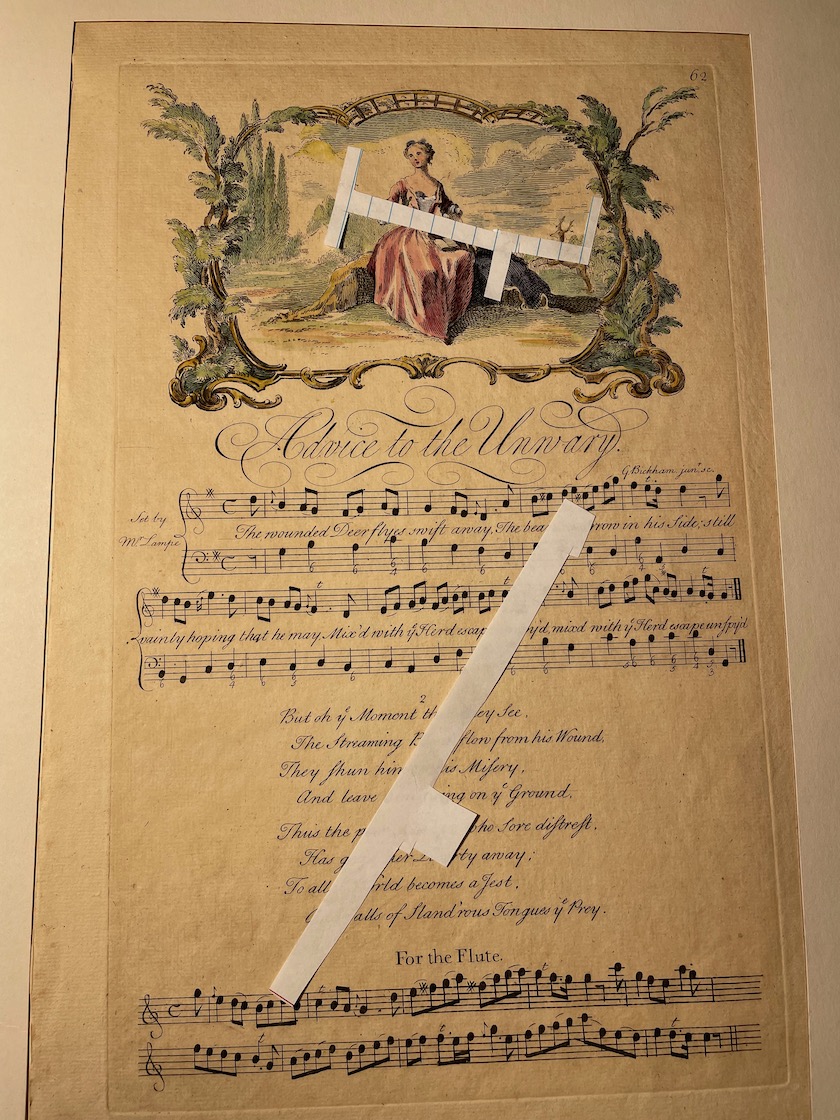 62
Advice to the Unwary.
G Bickham jun.r sc.
Set by
Mr. Lampe
The wounded Deer flyes swift away, The rrow in his Side; still
vainly hoping that he may Mix'd with ye Herd y'd, mixd with ye Herd escape unspy'd
2
But oh ye Moment ey See,
The Streaming flow from his Wound,
They shun his Misery,
And leave on ye Ground,
Thus the ho sore distrest,
Has away;
To all becomes a Jest,
of Sland'rous Tongues ye Prey.
For the Flute.